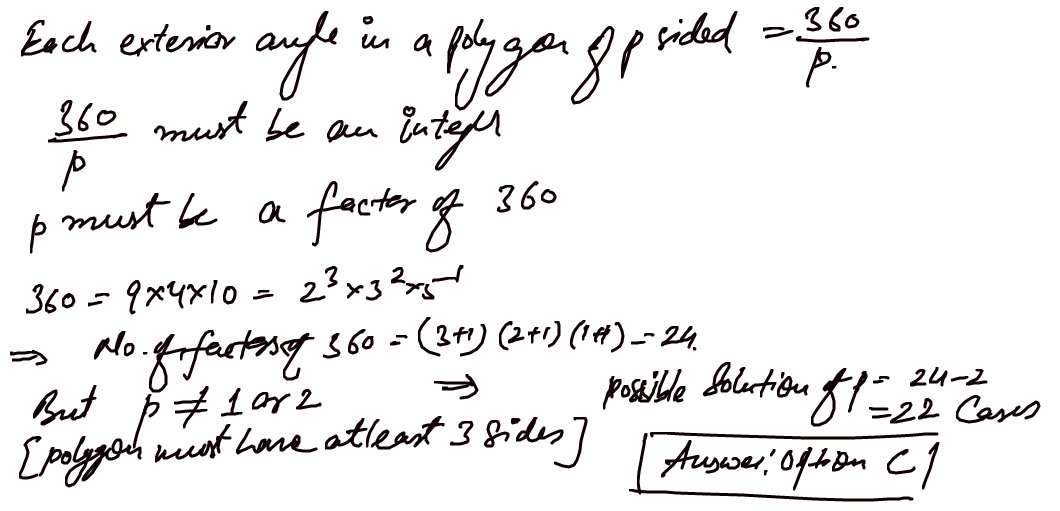 Each exterior angle in a polygon of p sided = 360/p.
360/p must be an integer
p must be a factor of 360
360 = 9×4×10 = 2³×3²×5¹
⇒ No. of factors of 360 = (3+1)(2+1)(1+1) = 24.
But p ≠ 1 or 2 ⇒ possible solution of p = 24-2
= 22 Cases
[polygon must have atleast 3 sides]
Answer: option C